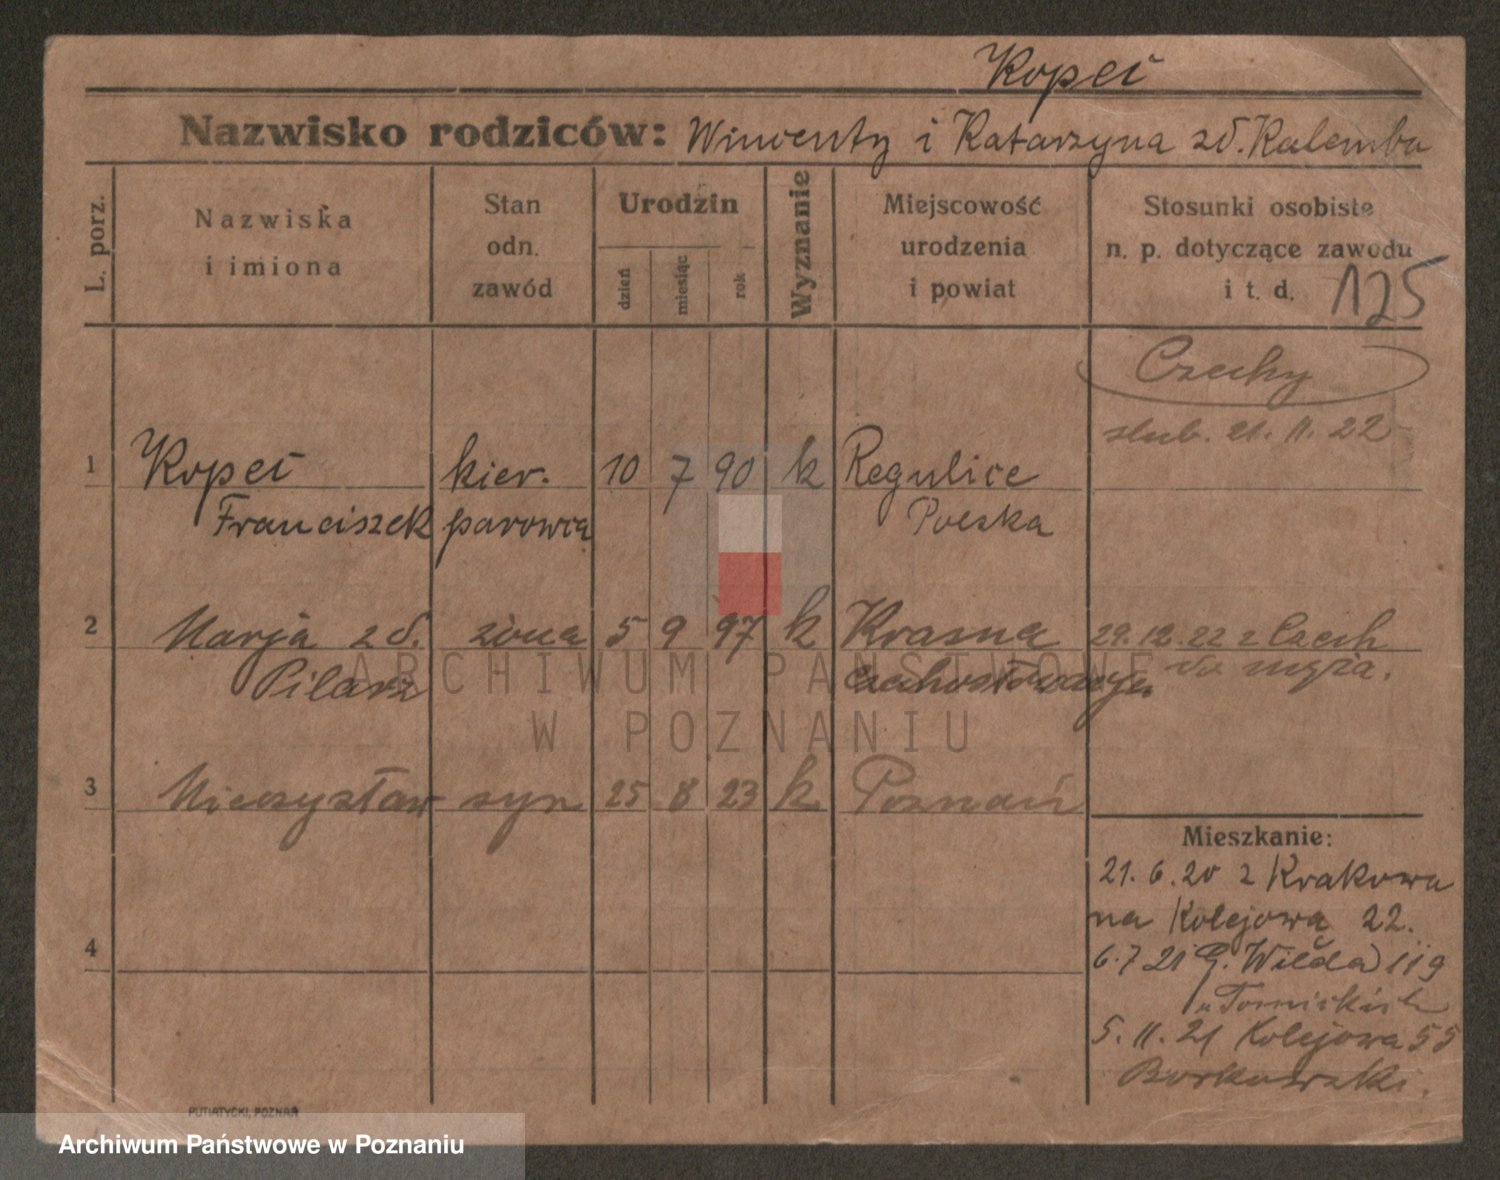 Kopeć
Nazwisko rodziców: Wincenty i Katarzyna zd. Kalemba
L. porz.
Nazwiska
i imiona
Stan
odn.
zawód
Urodzin
dzień
miesiąc
rok
Wyznanie
Miejscowość
urodzenia
i powiat
Stosunki osobiste
n. p. dotyczące zawodu
i t. d.
125
Czechy
ślub. 21. 11. 22
1 Kopeć kier. 10 7 90 k Regulice
Franciszek parowca Polska
2 Marja zd. żona 5 9 97 k Krasna 29.12.22 z Czech
Pilarz Czechosłowacja do męża.
3 Mieczysław syn 25 8 23 k Poznań
Mieszkanie:
21. 6. 20 z Krakowa
na Kolejową 22.
4
6.7 21 G. Wilda 119
u
5. 11. 21 Kolejowa 55
Borkowski.
PUTIATYCKI, POZNAŃ
ARCHIWUM PAŃSTWOWE
W POZNANIU
Archiwum Państwowe w Poznaniu